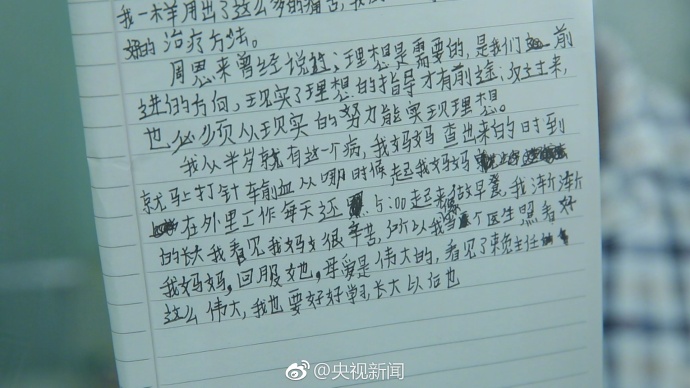 我一样用出了这么多的痛苦，
的治疗方法。
周恩来曾经说过：理想是需要的，是我们前
进的方向，现实了理想的指导才有前途；反过来，
也必须从现实的努力能实现理想。
我从半岁就有这个病，我妈妈查出来的时到
就马上打针输血从哪时候起我妈妈
在外里工作每天还 5:00起来做早餐，我渐渐
的长大我看见我妈妈很辛苦，所以我当个医生照看好
我妈妈，回服她，母爱是伟大的，看见了赖主任
这么伟大，我也要好好学习长大以后也
@央视新闻